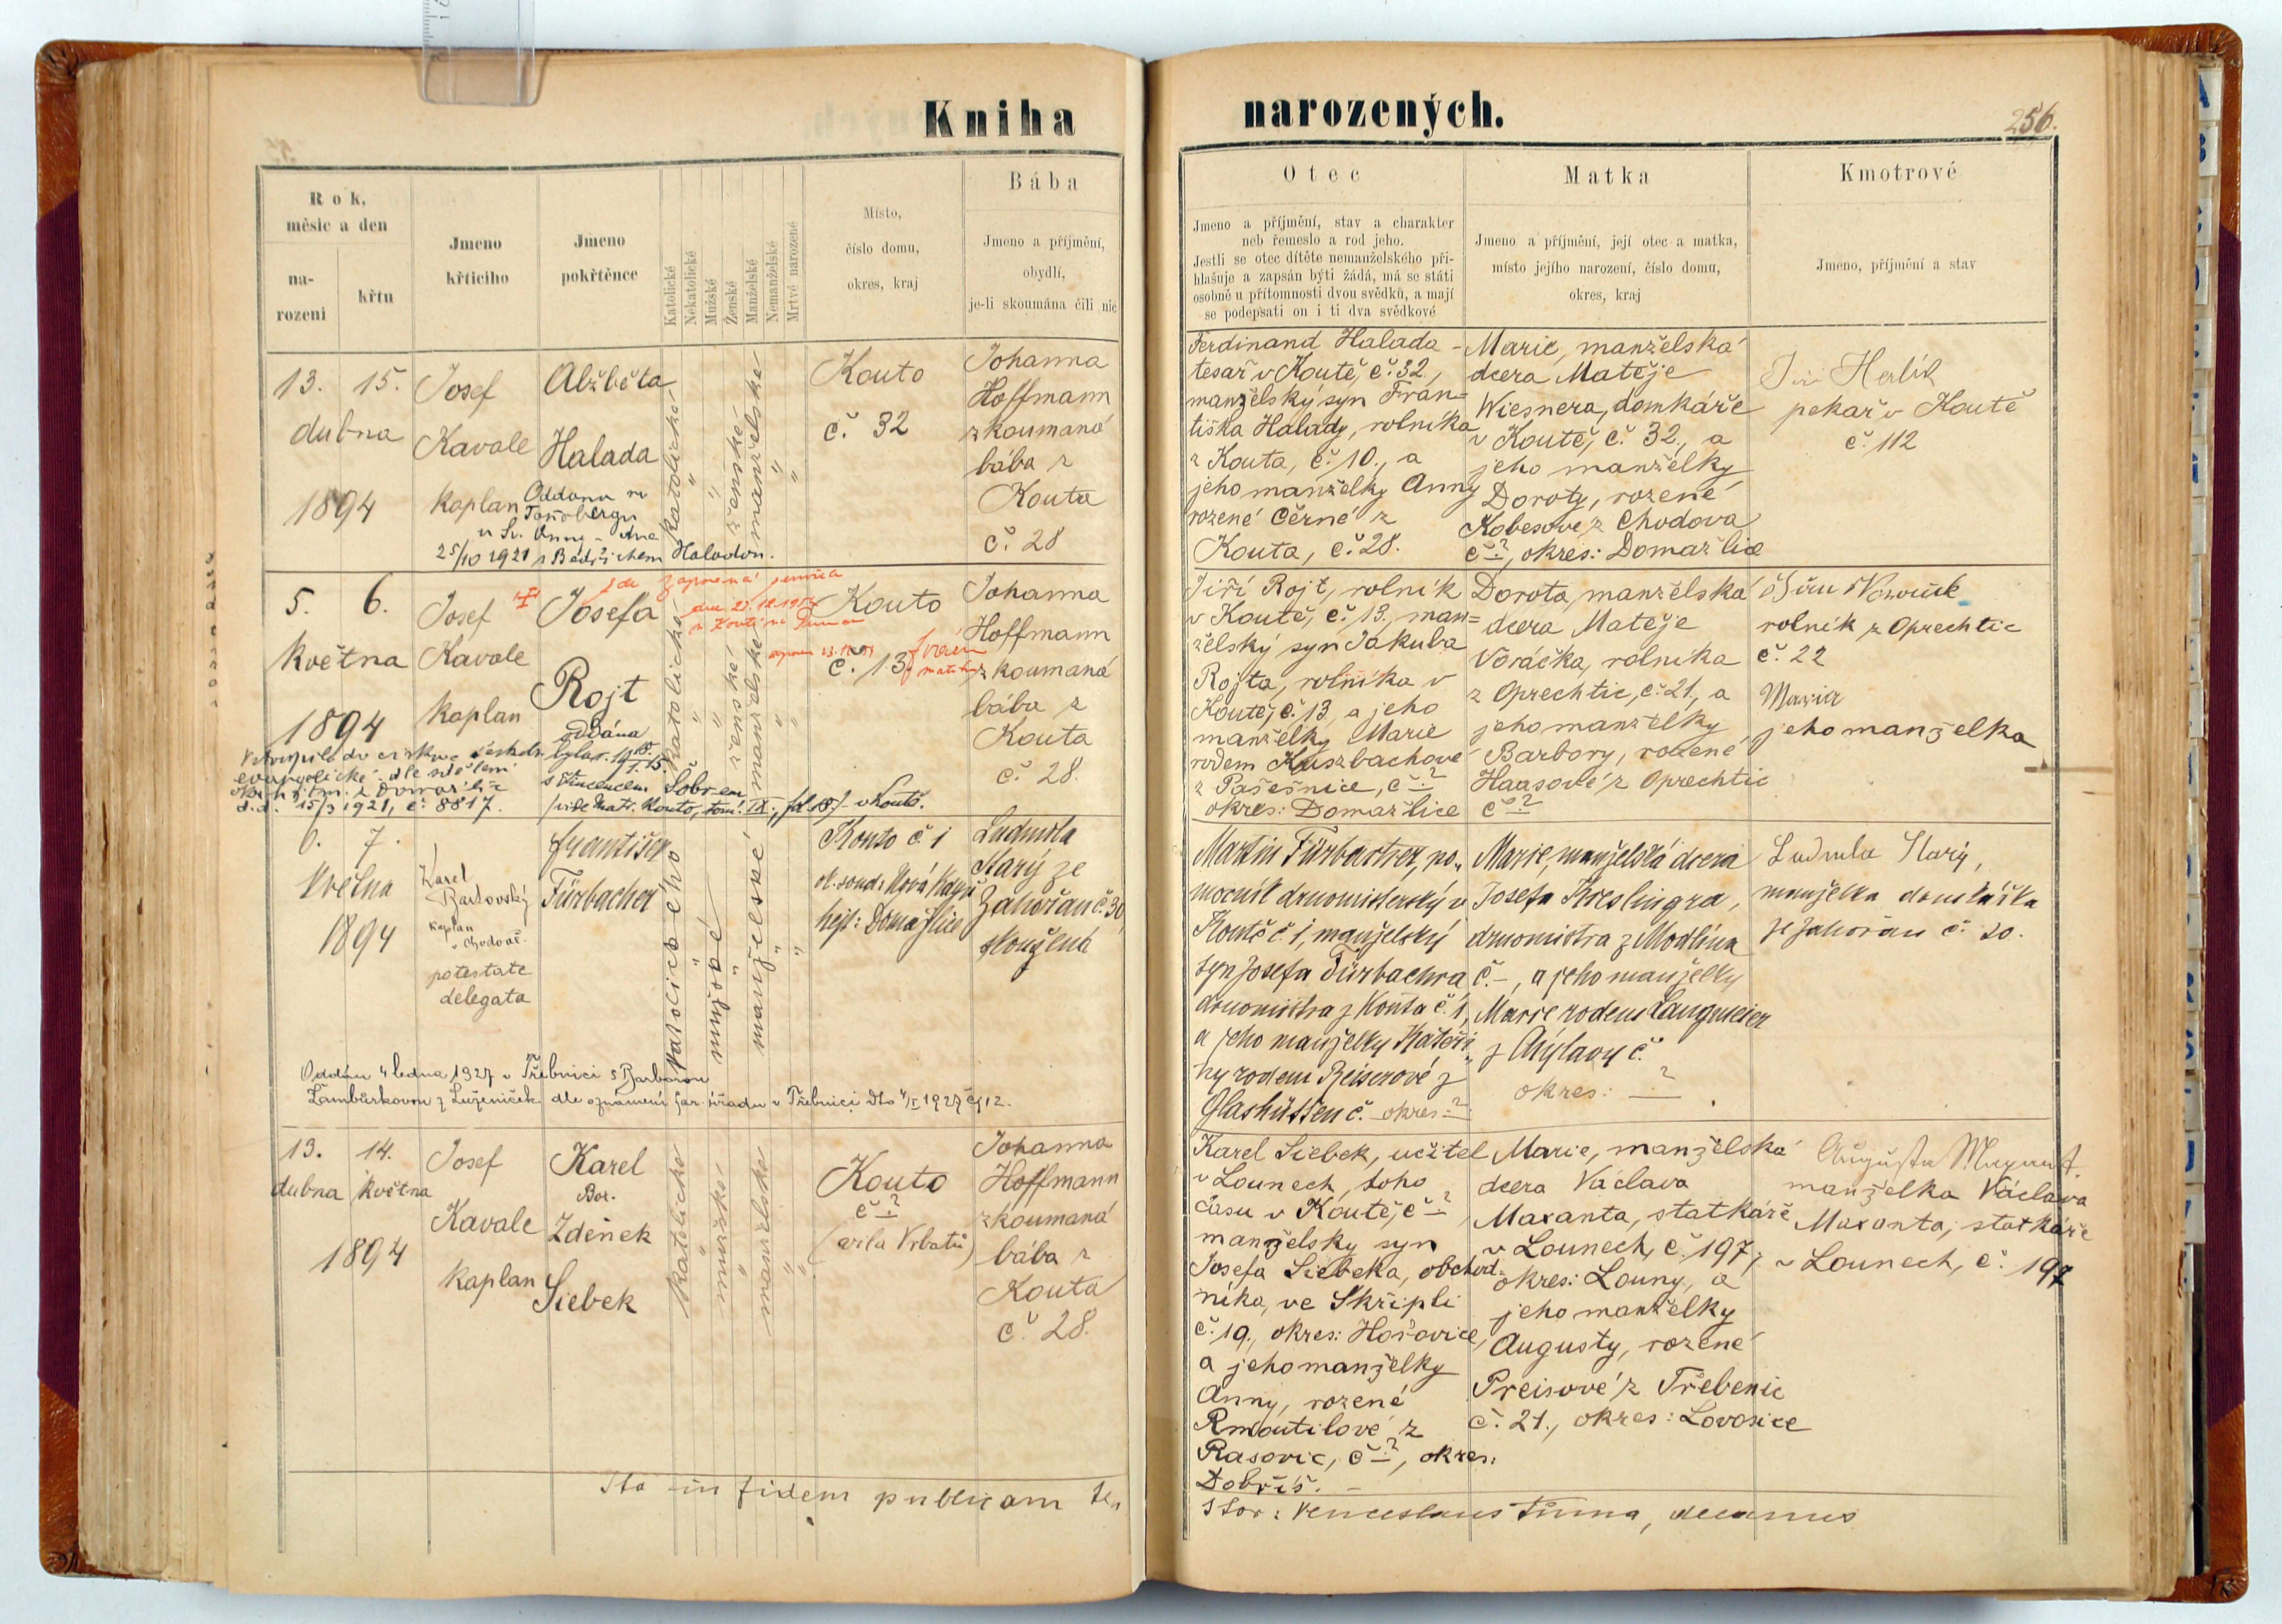 Kniha narozených.
256.
Rok,
měsíc a den
na-
rození
křtu
Jmeno
křtícího
Jmeno
pokřtěnce
Katolické
Nekatolické
Mužské
Ženské
Manželské
Nemanželské
Mrtvě narozené
Místo,
číslo domu,
okres, kraj
Bába
Jmeno a příjmění,
obydlí,
je-li skoumána čili nic
Otec
Jmeno a příjmění, stav a charakter
neb řemeslo a rod jeho.
Jestli se otec dítěte nemanželského při-
hlašuje a zapsán býti žádá, má se státi
osobně u přítomnosti dvou svědků, a mají
se podepsati on i ti dva svědkové
Matka
Jmeno a příjmění, její otec a matka,
místo jejího narození, číslo domu,
okres, kraj
Kmotrové
Jmeno, příjmění a stav
13. 15.
dubna
1894
Josef
Kavale
kaplan
Alžběta
Halada
Oddána ve
u Sv. Anny - dne
25/10 1921 s Bedřichem Haladou.
katolické
ženské
manželské
Kouto
č. 32
Johanna
Hoffmann
zkoumaná
bába z
Kouta
č. 28
Ferdinand Halada -
tesař v Koutě, č. 32.,
manželský syn Fran=
tiška Halady, rolníka
z Kouta, č. 10., a
jeho manželky Anny
rozené Černé z
Kouta, č. 28.
Marie, manželská
dcera Matěje
Wiesnera, domkáře
v Koutě, č. 32., a
jeho manželky
Doroty, rozené
Kobesové z Chodova
č. ?, okres: Domažlice
Jiří Herlík
pekař v Koutě
č. 112
5. 6.
května
1894
Josef
Kavale
kaplan
Josefa
Rojt
oddána
byla r. 1918
s Vincencem Šobrem
(vide Matr. Kouto, tom. IX., fol. 18.) v Koutě.
15/3 1921, č. 8817.
katolické
ženské
manželské
Kouto
č. 13
Johanna
Hoffmann
zkoumaná
bába z
Kouta
č. 28.
Jiří Rojt, rolník
v Koutě, č. 13., man=
želský syn Jakuba
Rojta, rolníka v
Koutě, č. 13, a jeho
manželky Marie
rodem Kuszbachové
z Pašešnice, č. ?
okres: Domažlice
Dorota, manželská
dcera Matěje
Voráčka, rolníka
z Oprechtic, č. 21., a
jeho manželky
Barbory, rozené
Haasové z Oprechtic
č. ?
rolník z Oprechtic
č. 22
Maria
jeho manželka
6. 7.
května
1894
Karel
Bartovský
kaplan
v Chodově.
potestate
delegata
František
Fürbacher
katolického
mužské
manželské
Kouto č. 1
ok. soud: Nová Kdyně
hejt: Domažlice
Ludmila
Starý ze
Zahořan č. 30,
zkoušená
Martin Fürbacher, po-
mocník drnomisterský v
Koutě č. 1, manželský
syn Josefa Fürbachra
drnomistra z Kouta č. 1,
a jeho manželky Kateři-
ny rodem Beiserové z
Glashütten č. - okres: ?
Marie, manželská dcera
Josefa Kreslingra,
drnomistra z Modlína
č. -, a jeho manželky
Marie rodem Langmeier
z Chýlavy č.
okres: - ?
Ludmila Starý,
manželka domkářka
ze Zahořan č. 20.
Oddán 4 ledna 1927 v Třebnici s Barborou
Žambůrkovou z Luženiček dle oznámení far. úřadu v Třebnici dto 4/I 1927 čj 12.
13. 14.
dubna května
1894
Josef
Kavale
kaplan
Karel
Bor.
Zdeněk
Siebek
katolické
mužské
manželské
Kouto
č. ?
(villa Vrbatů)
Johanna
Hoffmann
zkoumaná
bába z
Kouta
č. 28.
Karel Siebek, učitel
v Lounech, toho
času v Koutě, č. ?,
manželský syn
Josefa Siebeka, obchod-
níka, ve Skřipli
č. 19., okres: Hořovice,
a jeho manželky
Anny, rozené
Rmoutilové z
Rasovic, č. ?, okres:
Dobříš. -
Marie, manželská
dcera Václava
Maxanta, statkáře
v Lounech, č. 197,
okres: Louny, a
jeho manželky
Augusty, rozené
Preisové z Třebenic
č. 21., okres: Lovosice
Augusta Maxant.
manželka Václava
Maxanta, statkáře
v Lounech, č. 197
Ita in fidem publicam te-
stor: Venceslaus Tůma, decanus